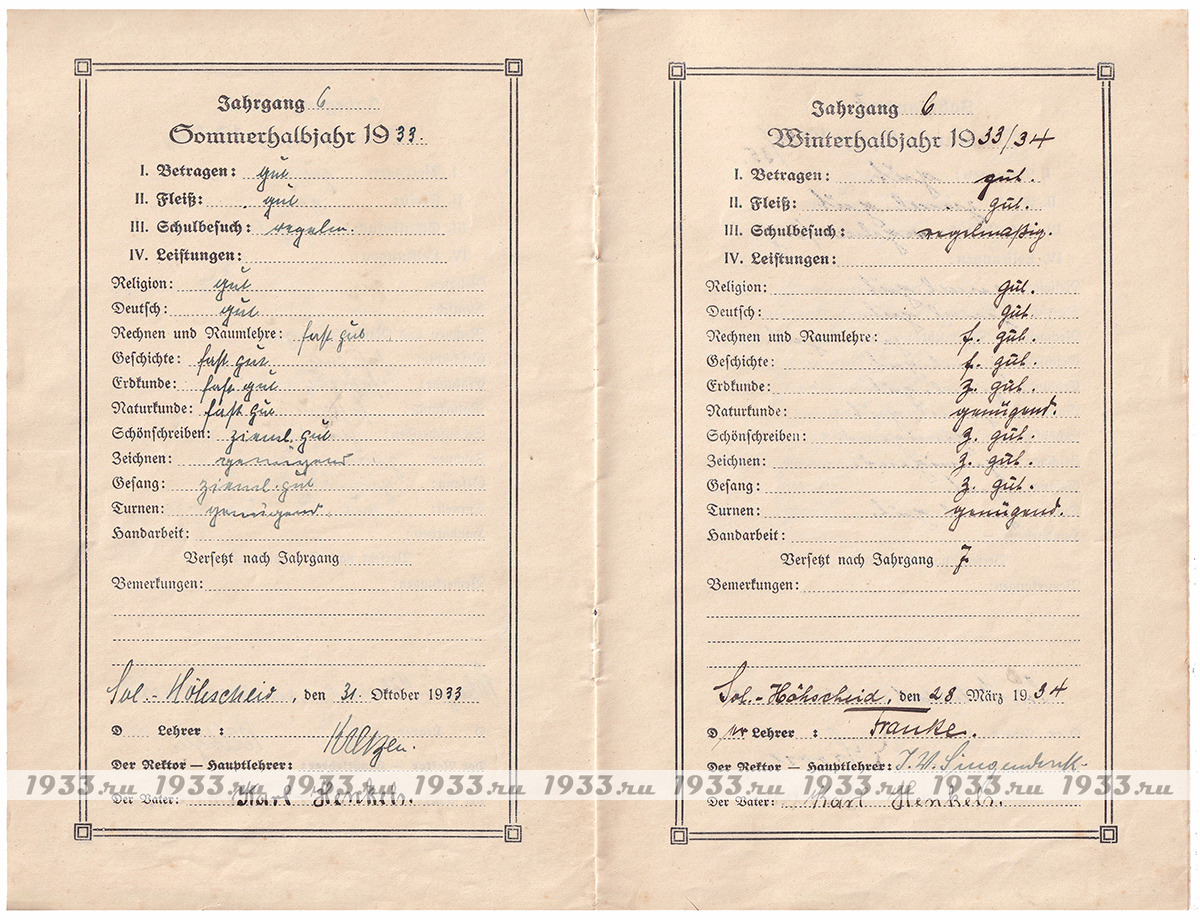 Jahrgang 6
Sommerhalbjahr 1933.
I. Betragen: gut
II. Fleiß: gut
III. Schulbesuch: regelm.
IV. Leistungen:
Religion: gut
Deutsch: gut
Rechnen und Raumlehre: fast gut
Geschichte: fast gut
Erdkunde: fast gut
Naturkunde: fast gut
Schönschreiben: zieml. gut
Zeichnen: genügend
Gesang: zieml. gut
Turnen: genügend.
Handarbeit:
Versetzt nach Jahrgang
Bemerkungen:
Sol.-Höhscheid, den 31. Oktober 1933
D Lehrer :
Der Rektor — Hauptlehrer:
Der Vater: Karl Henkels.
Jahrgang 6
Winterhalbjahr 1933/34
I. Betragen: gut.
II. Fleiß: gut.
III. Schulbesuch: regelmäßig.
IV. Leistungen:
Religion: gut.
Deutsch: gut
Rechnen und Raumlehre: f. gut.
Geschichte: f. gut.
Erdkunde: z. gut.
Naturkunde: genügend.
Schönschreiben: z. gut.
Zeichnen: z. gut.
Gesang: z. gut.
Turnen: genügend.
Handarbeit:
Versetzt nach Jahrgang 7
Bemerkungen:
Sol.-Höhscheid, den 28 März 1934
Der Lehrer : Franke.
Der Rektor — Hauptlehrer:
Der Vater: Karl Henkels.
1933.ru 1933.ru 1933.ru 1933.ru 1933.ru 1933.ru 1933.ru 1933.ru